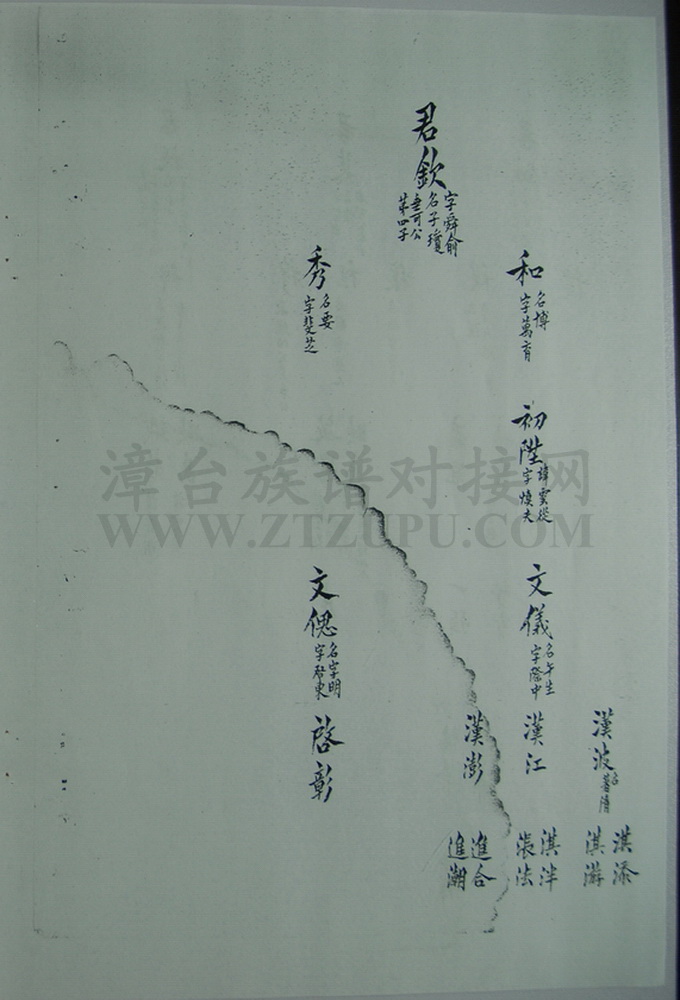 君欽
字舜俞
名子瓊
垂可公
第四子
和
名博
字萬育
秀
名要
字斐芝
初陞
諱雲從
字煥夫
漳台族谱对接网
WWW.ZTZUPU.COM
文儀
名午生
字際中
文偲
名字明
字啓東
漢波
名
漢江
漢澎
啓彰
淇添
淇游
淇泮
張法
進合
進潮